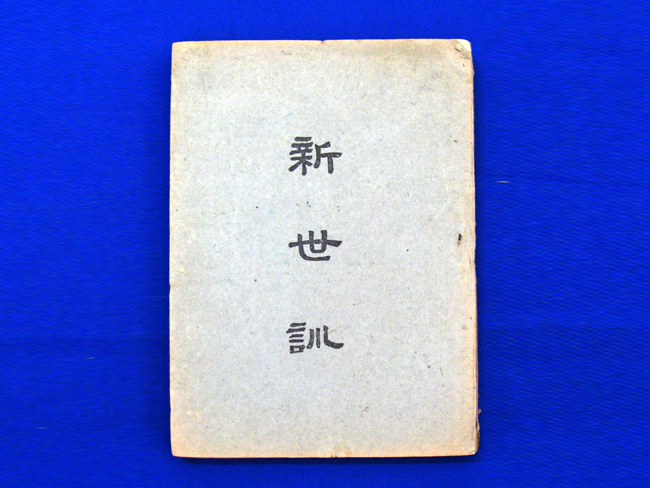 新世訓